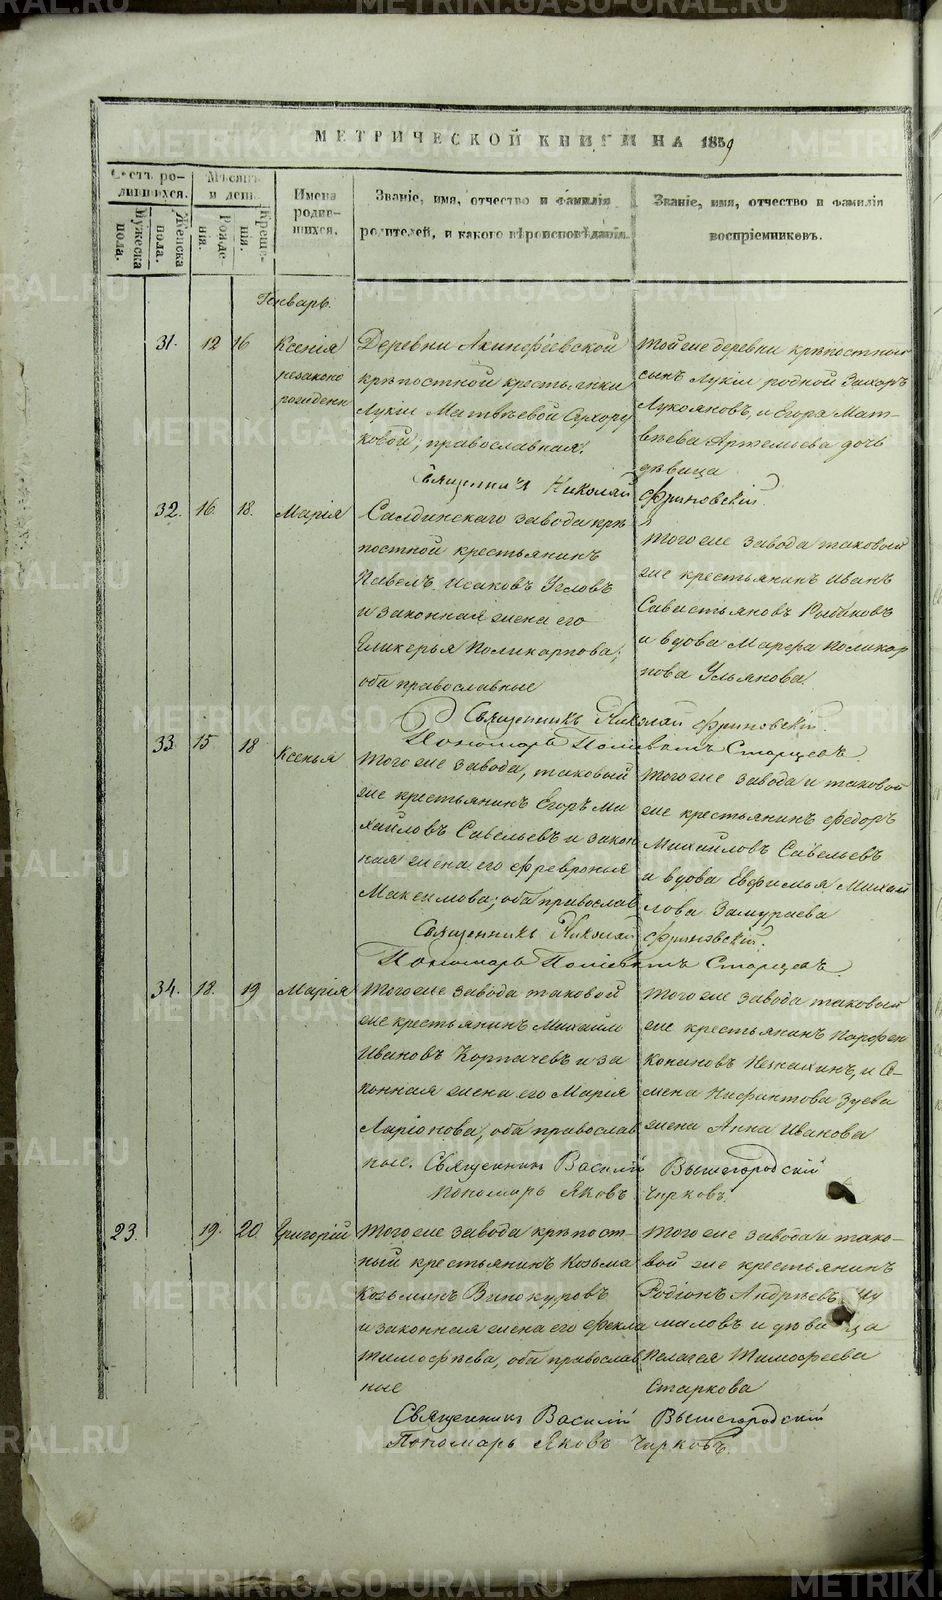 МЕТРИЧЕСКОЙ КНИГИ НА 1859
Счетъ ро-
дившихся.
Мужеска
пола.
Женска
пола.
Мѣсяцъ
и день.
Рожде-
нія.
Креще-
нія.
Имена
родив-
шихся.
Званіе, имя, отчество и фамилія
родителей, и какого вѣроисповѣданія.
Званіе, имя, отчество и фамилія
воспріемниковъ.
Генварь.
31. 12 16 Ксенія
незаконо
рожденн
Деревни Акинфіевской
крѣпостной крестьянки
Лукіи Матвѣевой Сухору
ковой, православная.
Тойже деревни крѣпостный
сынъ Лукіи родной Захаръ
Лукояновъ, и Егора Мат-
вѣева Артемьева дочь
дѣвица
Священникъ Николай Фриновскій
32. 16. 18. Марія
Салдинскаго завода крѣ
постной крестьянинъ
Павелъ Исаковъ Угловъ
и законная жена его
Гликерья Поликарпова;
оба православные
Тогоже завода таковый
же крестьянинъ Иванъ
Савастьяновъ Рыбаковъ
и вдова Марфа Поликар
пова Ульянова.
Священникъ Николай Фриновскій.
Пономарь Поліевктъ Старцевъ
33. 15 18 Ксенья
Тогоже завода, таковый
же крестьянинъ Егоръ Ми
хайловъ Савельевъ и закон
ная жена его Февронья
Максимова; оба православ
Тогоже завода и таковой
же крестьянинъ Федоръ
Михайловъ Савельевъ
и вдова Евфимья Михай
лова Замураева
Священникъ Николай Фриновскій.
Пономарь Поліевктъ Старцевъ
34. 18. 19 Марія
Тогоже завода таковой
же крестьянинъ Михаилъ
Ивановъ Корпачевъ и за
конная жена его Марія
Ларіонова, оба православ
ные.
Тогоже завода таковый
же крестьянинъ Парфен
Конановъ Незнахинъ, и Се-
мена Нифантова Зуева
жена Анна Иванова
Священникъ Василій Вышегородскій
Пономарь Яковъ Чирковъ.
23. 19. 20 Григорій
Тогоже завода крѣпост-
ный крестьянинъ Козьма
Козьминъ Винокуровъ
и законная жена его Фекла
Тимофѣева, оба православ
ные
Тогоже завода и тако-
вой же крестьянинъ
Родіонъ Андрѣевъ Шу
маловъ и дѣвица
Пелагея Тимофеева
Старкова
Священникъ Василій Вышегородскій
Пономарь Яковъ Чирковъ.
METRIKI.GASO-URAL.RU